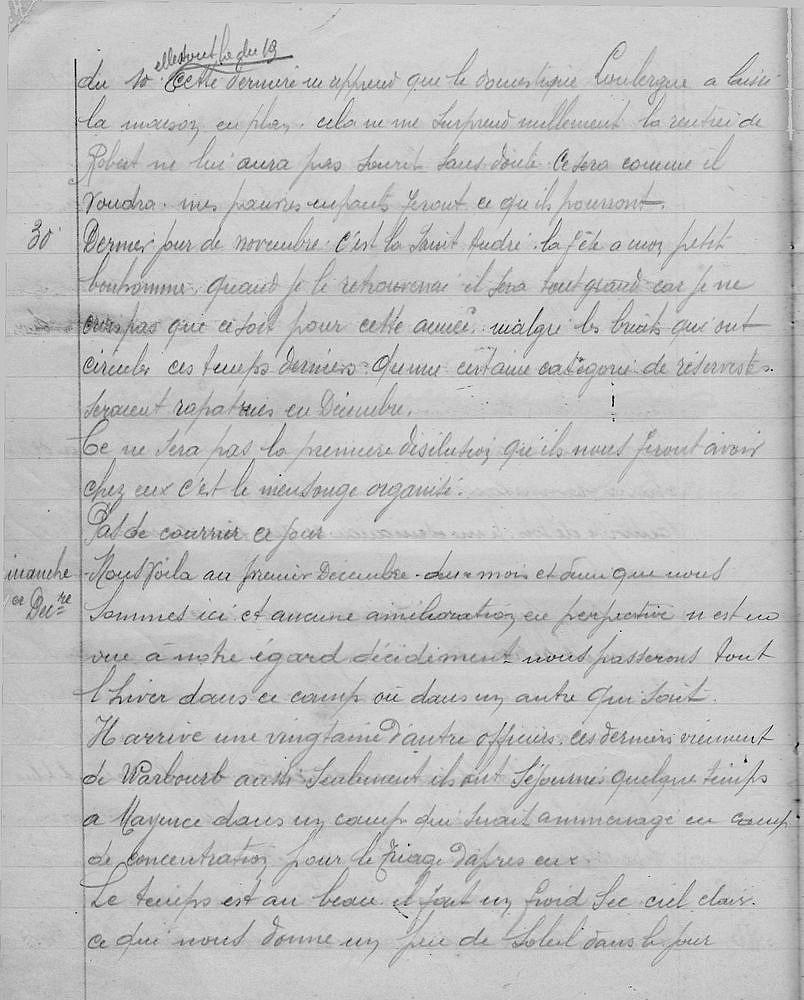 elles sont hq du 19
du 10. Cette dernière m'apprend que le domestique Loubergue a laissé
la maison en plan. cela ne me surprend nullement la rentrée de
Robert ne lui aura pas souri sans doute. Ce sera comme il
voudra. mes pauvres enfants feront ce qu'ils pourront.
30 Dernier jour de novembre. C'est la Saint André. la fête a mon petit
bonhomme, quand je le retrouverai il sera tout grand car je ne
crois pas que ce soit pour cette année. malgré les bruits qui ont
circulé ces temps derniers. qu'une certaine catégorie de réservistes.
seraient rapatriés en Décembre.
Ce ne sera pas la première désilution qu'ils nous feront avoir
chez eux c'est le mensonge organisé.
Pas de courrier ce jour
imanche Nous voila au premier Décembre. deux mois et demi que nous
1er Décre sommes ici et aucune amélioration en perpective n'est en
vue à notre égard décidement nous passerons tout
l'hiver dans ce camp où dans un autre qui sait.
Il arrive une vingtaine d'autre officiers. ces derniers viennent
de Warbourb aussi Seulement ils ont séjournés quelque temps
a Mayence dans un camp qui serait ammenagé en camp
de concentration pour le triage d'après eux.
Le temps est au beau il fait un froid sec ciel clair.
ce qui nous donne un peu de soleil dans le jour